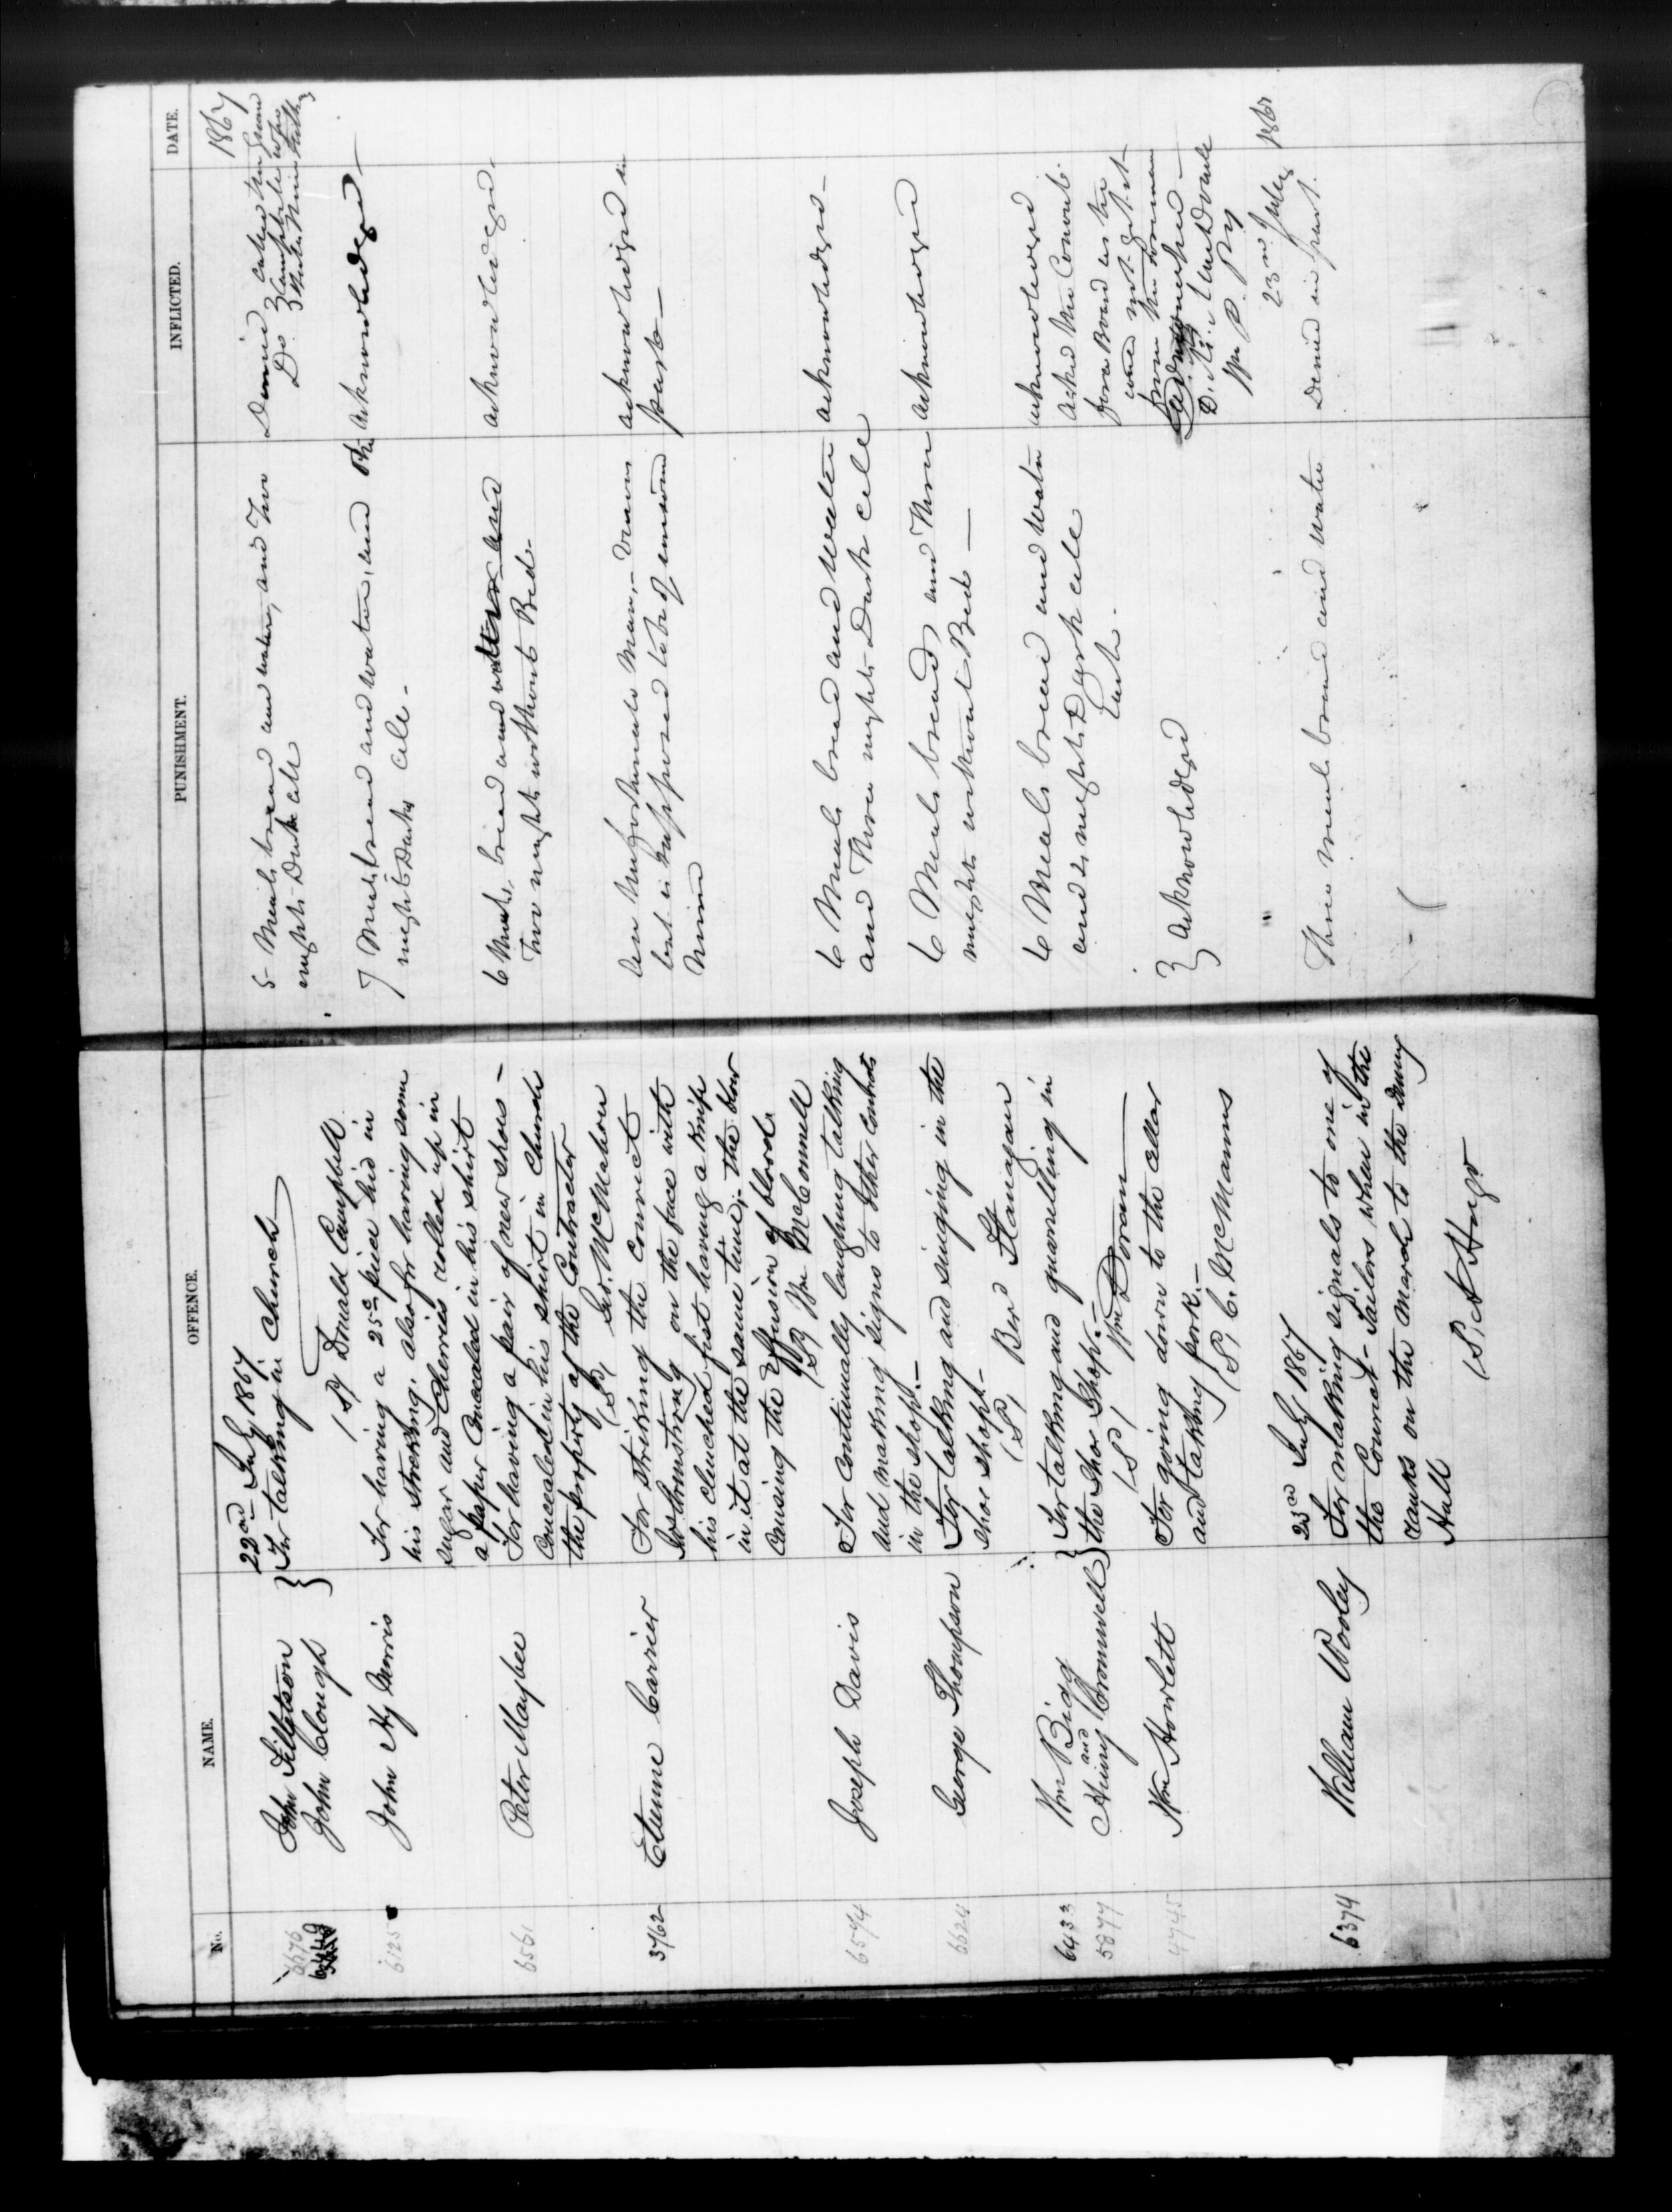 No. NAME. OFFENCE. PUNISHMENT. INFLICTED. DATE.
1867
22nd July 1867
6676 John Tilletson
John Clough
For talking in Church
(S) Donald Campbell
5 Meals bread and water, and Two
nights Dark cell
Denied
Do
6125 John Hy Morris
For having a 25c piece hid in
his stocking, also for having some
sugar and cherries rolled up in
a paper concealed in his shirt
7 Meals bread and water, and
nights Dark cell -
Acknowledged -
6561 Peter Maybee
For having a pair of new shoes -
concealed in his shirt in Church
the property of the Contractor
(S) Geo. McMahon
6 Meals, bread and water and
Two nights without Bed -
acknowledged -
3762 Etienne Carrier
For striking the Convict
Armstrong on the face with
his clenched fist having a knife
in it at the same time; the blow
causing the effusion of blood.
(S) Wm McConnell
An Unfortunate Man, -
but is supposed to be of unsound
Mind
acknowledged in
part -
6574 Joseph Davis
For continually laughing talking
and making signs to other convicts
in the shop. -
6 Meals bread and water
and Three nights Dark cell
acknowledged -
6624 George Thompson
For talking and singing in the
shoe shop -
(S) Berd Flanagan
6 Meals bread, and Three
nights without Bed -
acknowledged
6433 Wm Bigg
and
5877 Henry Cromwell
For talking and quarrelling in
the Shoe Shop. -
(S) Wm Doran
6 Meals bread and water
and 2 nights Dark cell
Each.
acknowledged
4745 Wm Howlett
For going down to the cellar
and taking pork. -
(S) C. McManus
acknowledged
Admonished -
D. Æ. MacDonell
W P. P Py
23rd July 1867
23rd July 1867
6374 William Wooley
For making signals to one of
the Convict - Tailors when in the
ranks on the march to the Dining
Hall
Three meals bread and water
Denied in part.